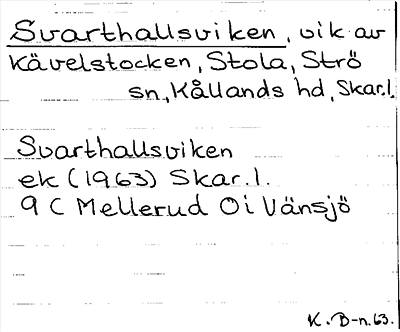 Svarthallsviken, vik av
Kävelstocken, Stola, Strö
sn., Kållands hd, Skar.l.
Svarthallsviken
ek (1963) Skar.l.
9 C Mellerud Öi Vänsjö
K. B-n. 63.